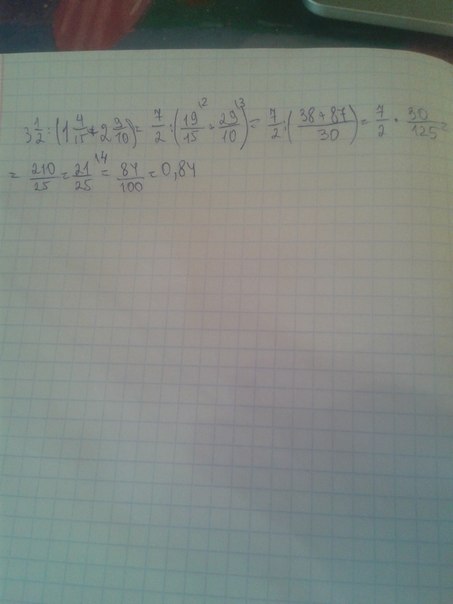 3 1/2 : (1 4/15 + 2 9/10) = 7/2 : (19/15 \2 + 29/10 \3) = 7/2 : (38+87/30) = 7/2 · 30/125 =
= 210/25 = 21/25 \4 = 84/100 = 0,84